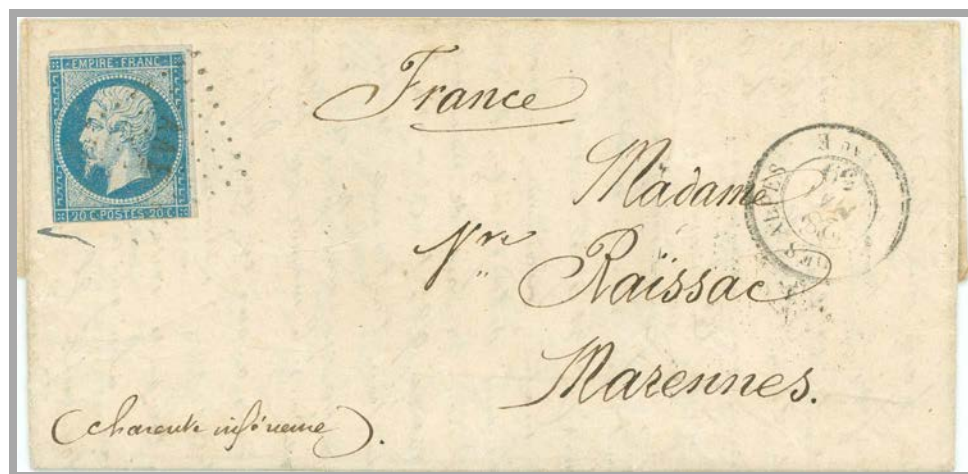 EMPIRE · FRANC
20 C · POSTES · 20 C
France
Madame
Vve
Raïssac
Marennes.
(charente inférieure).